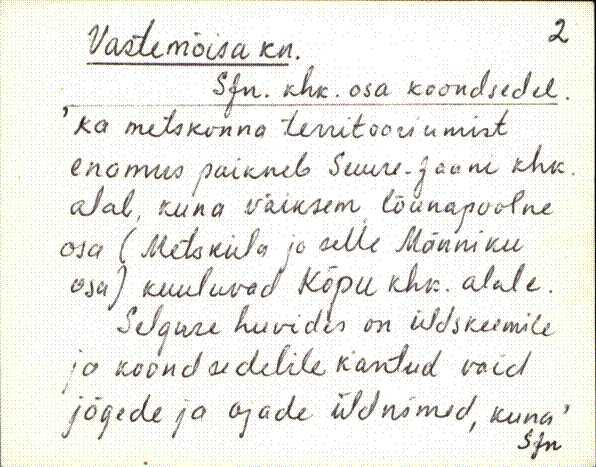 2
Vastemõisa kn.
Sjn. khk. osa koondsedel.
'ka metskonna territooriumist
enamus paikneb Suure-Jaani khk.
alal, kuna väiksem lõunapoolne
osa (Metsküla ja selle Männiku
osa) kuuluvad Kõpu khk. alale.
Selguse huvides on üldskeemile
ja koondsedelile kantud vaid
jõgede ja ojade üldnimed, kuna'
Sjn